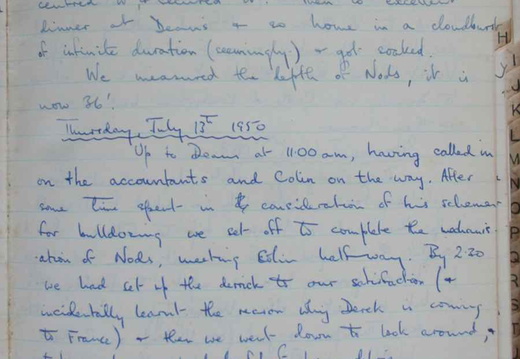 dinner at Deans & so home in a cloudburst
of infinite duration (seemingly) & got soaked.
We measured the depth of Nods, it is
now 36'.
Thursday, July 13th 1950
Up to Deans at 11.00 am, having called in
on the accountants and Colin on the way. After
some time spent in consideration of his schemes
for bulldozing we set off to complete the
of Nods, meeting half way. By 2.30
we had set up the derrick to our satisfaction (&
incidentally learnt the reason why Derek is coming
to France) & then we went down to look around, &
H
I
J
K
L
M
N
O
P
Q
R
S
T